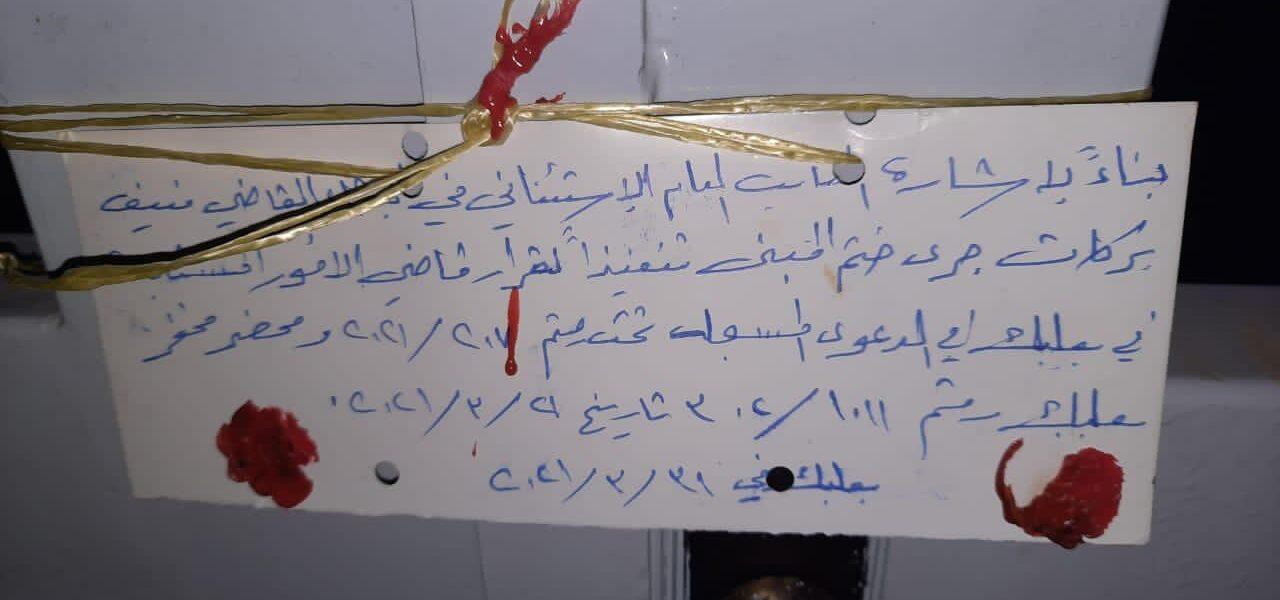 بناءً لإشارة النائب العام الإستئنافي في القاضي منيف
بركات جرى ختم المبنى تنفيذاً لقرار قاضي الامور المستعجلة
في بعلبك في الدعوى المسجلة تحت رقم ٢٠٢١/٢٠٧ ومحضر مخفر
بعلبك رقم ٣٠٢/١٠١١ تاريخ ٢٠٢١/٣/٢٦
بعلبك في ٢٠٢١/٣/٣١